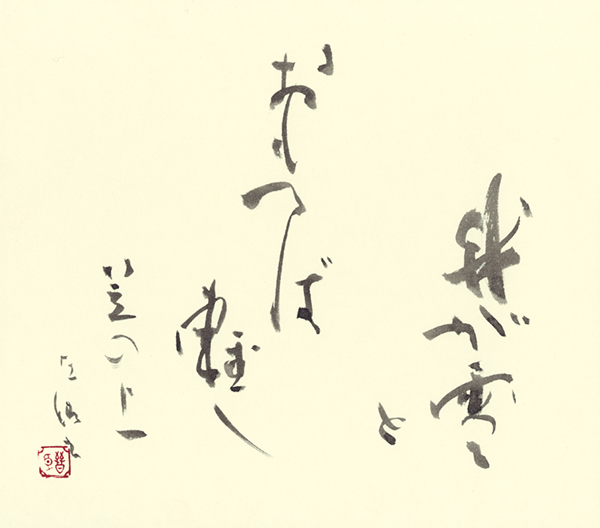 我が雪
と
おもへば
軽し
笠の上